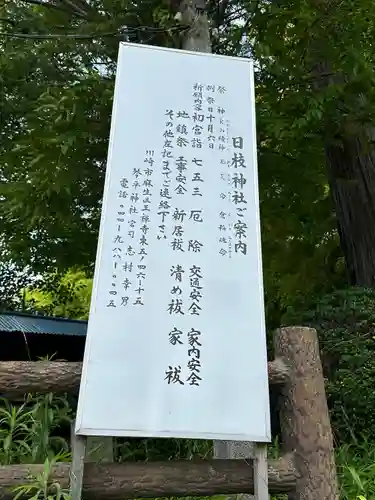 日枝神社ご案内
祭神
例祭日十月六日
祈願内容 初宮詣 七五三 厄除 交通安全 家内安全
地鎮祭 工事安全 新居祓 清め祓 家祓
その他左記までご連絡下さい
川崎市麻生区王禅寺東五ノ四六ー十五
琴平神社宮司 志村幸男
電話 〇四四ー九八八ー〇〇四五